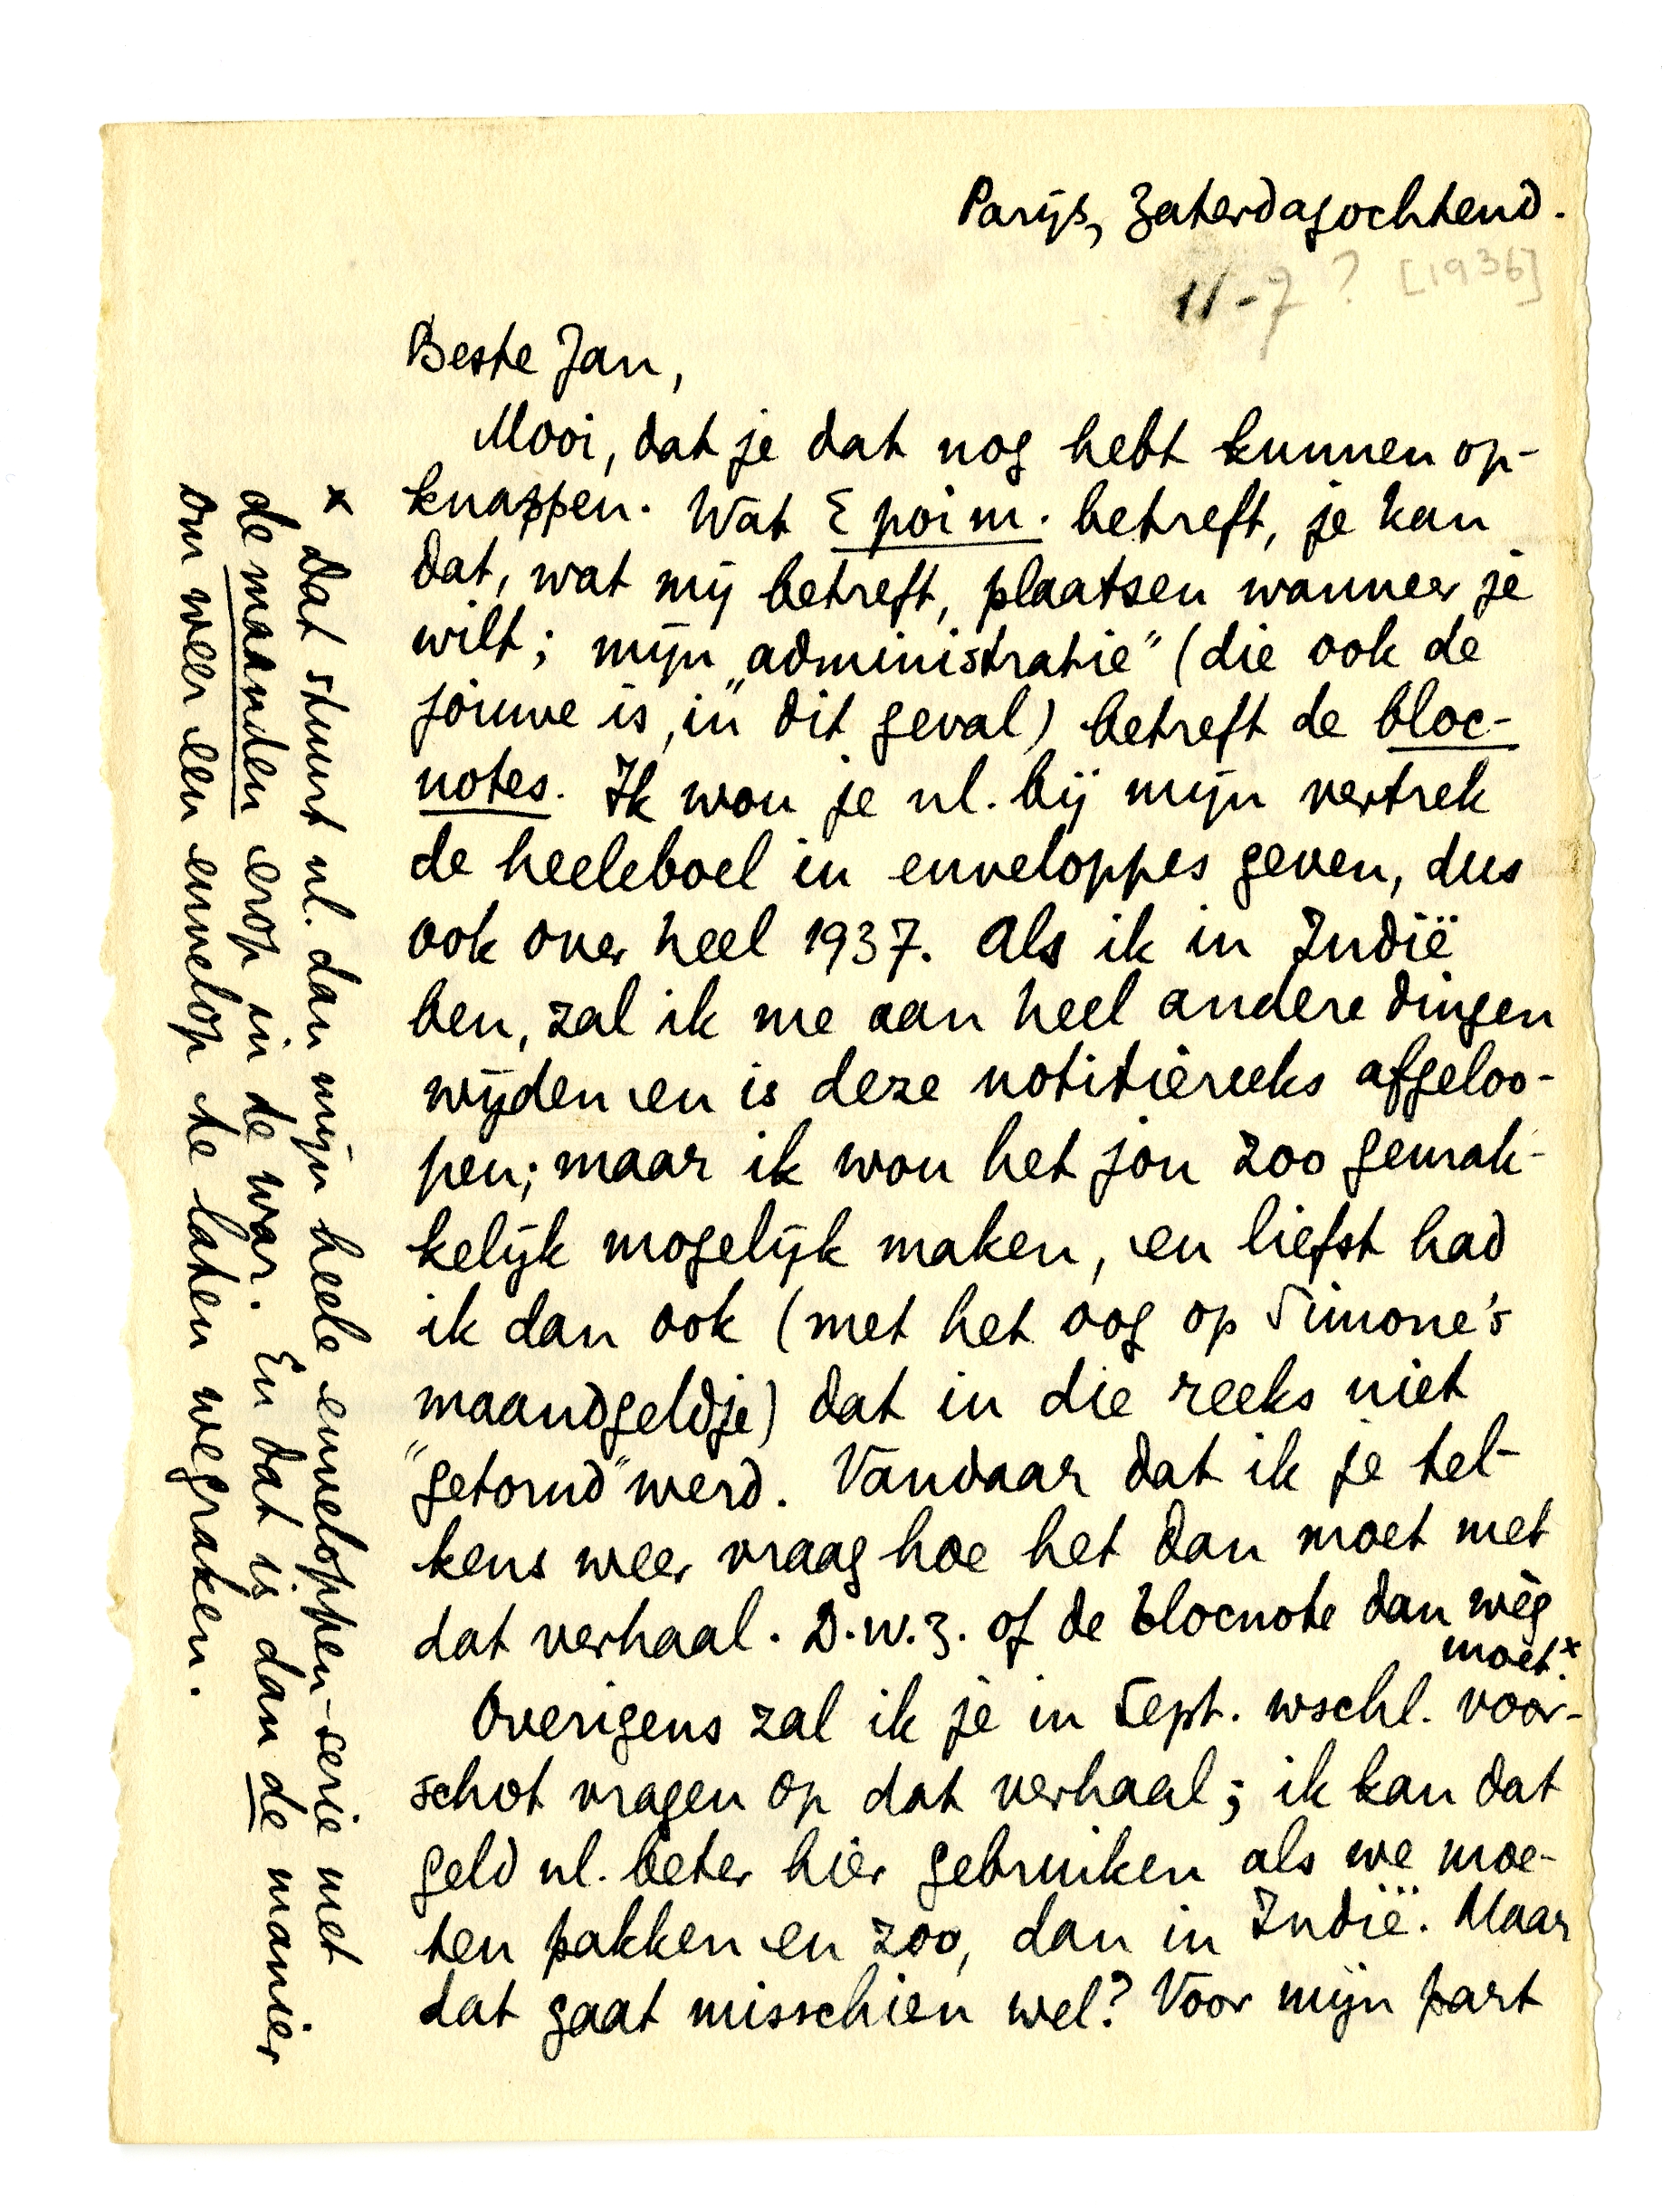 Parijs, Zaterdagochtend.
11-7? [1936]
Beste Jan,
Mooi, dat je dat nog hebt kunnen op-
knappen. Wat E poim. betreft, je kan
dat, wat mij betreft, plaatsen wanneer je
wilt; mijn „administratie" (die ook de
jouwe is, in dit geval) betreft de bloc-
notes. Ik wou je nl. bij mijn vertrek
de heeleboel in enveloppes geven, dus
ook over heel 1937. Als ik in Indië
ben, zal ik me aan heel andere dingen
wijden en is deze notitiereeks afgeloo-
pen; maar ik wou het jou zoo gemak-
kelijk mogelijk maken, en liefst had
ik dan ook (met het oog op Simone's
maandgeldje) dat in die reeks niet
"getornd" werd. Vandaar dat ik je tel-
kens weer vraag hoe het dan moet met
dat verhaal. D.w.z. of de blocnote dan wèg
moet.x
Overigens zal ik je in Sept. wschl. voor-
schot vragen op dat verhaal; ik kan dat
geld nl. beter hier gebruiken als we moe-
ten pakken en zoo, dan in Indië. Maar
dat gaat misschien wel? Voor mijn part
x dat stuurt nl. dan mijn heele enveloppen-serie met
de maanden erop in de war. En dat is dan de manier
om weer een envelop te laten wegraken.